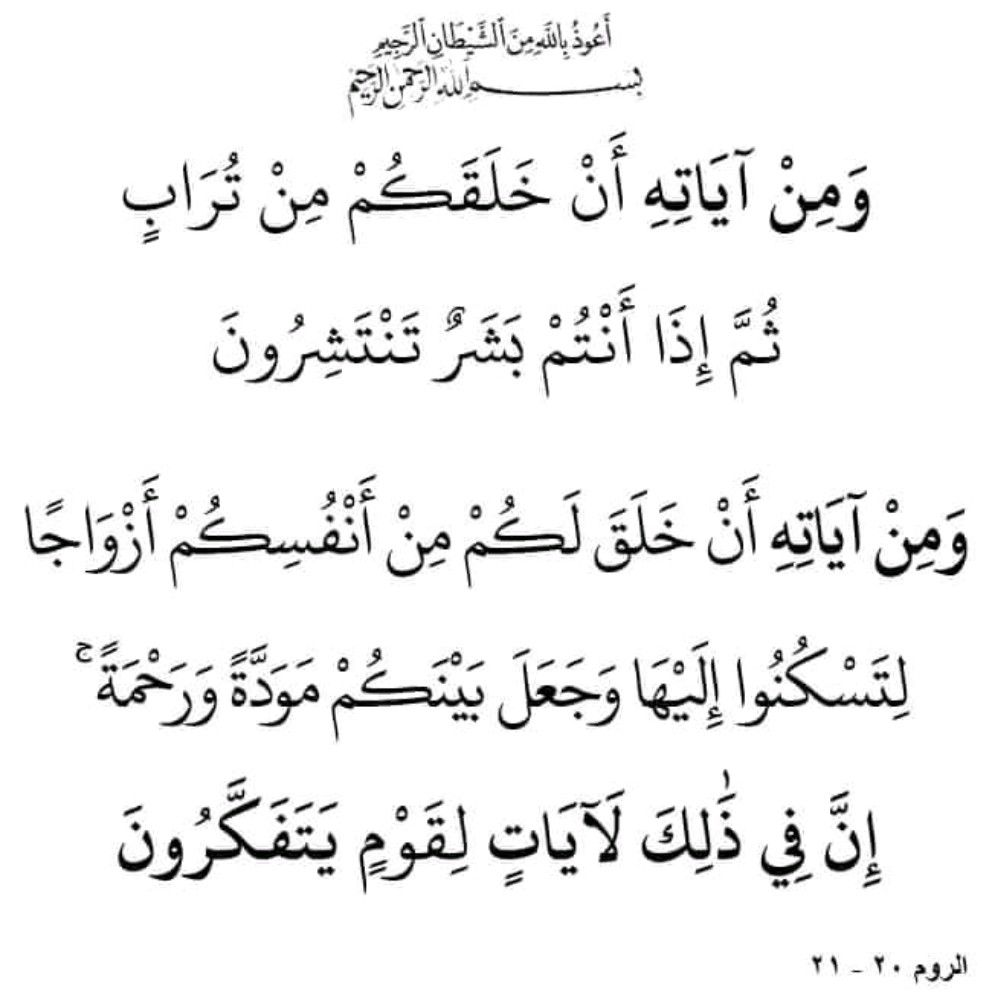 أَعُوذُ بِاللَّهِ مِنَ ٱلشَّيْطَانِ ٱلرَّجِيمِ
بِسْمِ اللَّهِ الرَّحْمَٰنِ الرَّحِيمِ
وَمِنْ آيَاتِهِ أَنْ خَلَقَكُمْ مِنْ تُرَابٍ
ثُمَّ إِذَا أَنْتُمْ بَشَرٌ تَنْتَشِرُونَ
وَمِنْ آيَاتِهِ أَنْ خَلَقَ لَكُمْ مِنْ أَنْفُسِكُمْ أَزْوَاجًا
لِتَسْكُنُوا إِلَيْهَا وَجَعَلَ بَيْنَكُمْ مَوَدَّةً وَرَحْمَةً ۚ
إِنَّ فِي ذَٰلِكَ لَآيَاتٍ لِقَوْمٍ يَتَفَكَّرُونَ
الروم ٢٠ - ٢١